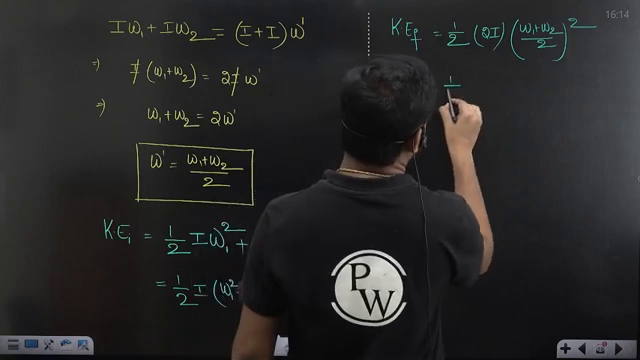 Iω₁ + Iω₂ = (I+I)ω'
⇒ I(ω₁+ω₂) = 2Iω'
⇒ ω₁+ω₂ = 2ω'
ω' = (ω₁+ω₂)/2
K·E₁ = 1/2 Iω₁² +
= 1/2 I(ω₁²
K·E_f = 1/2 (2I) ((ω₁+ω₂)/2)²
1
PW
16:14